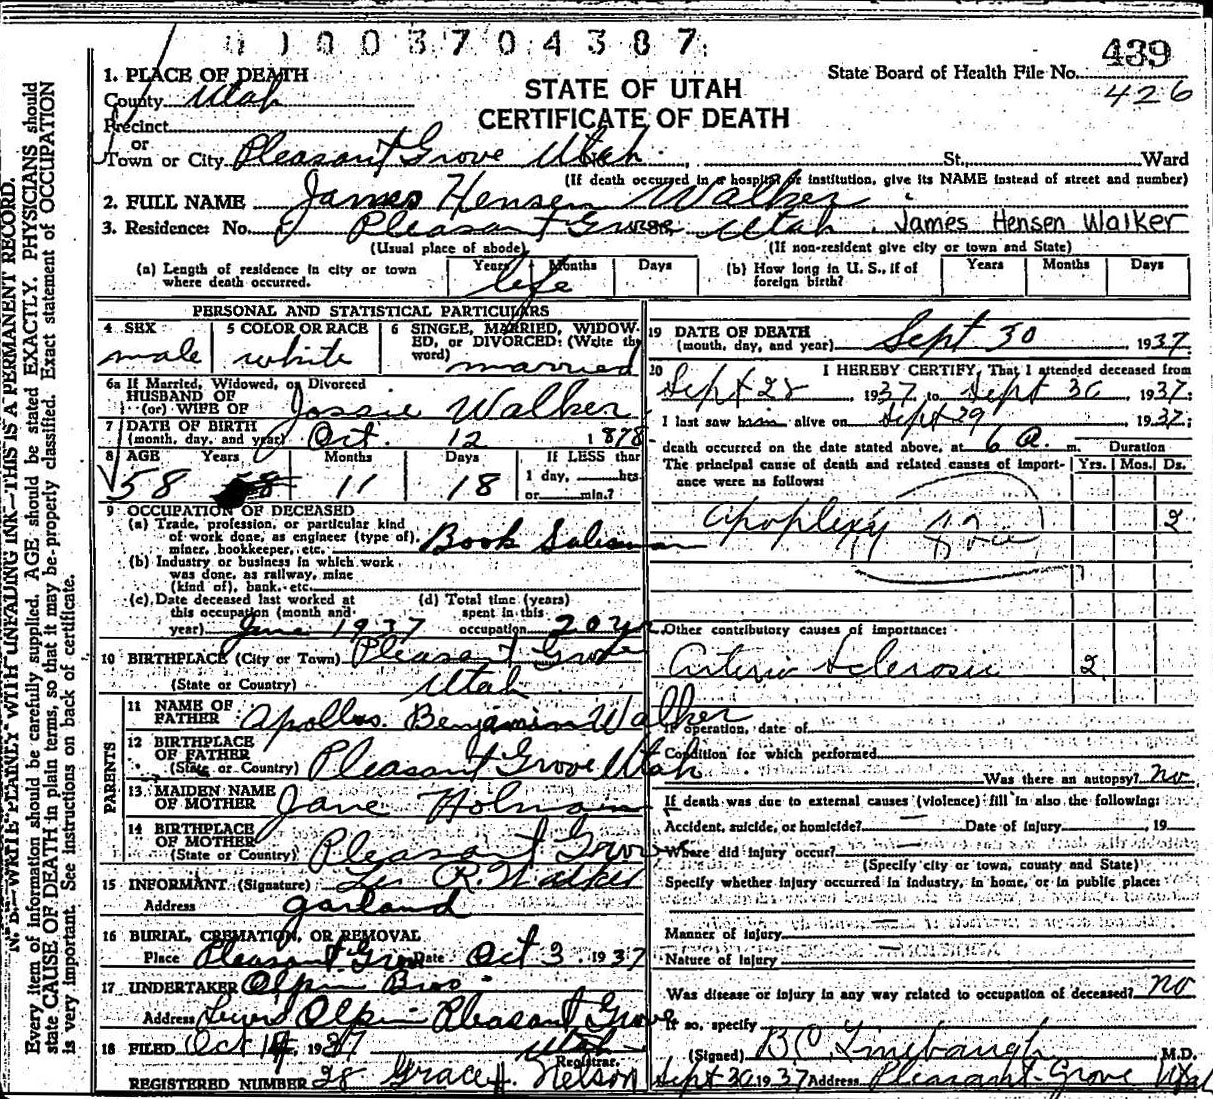 01003704387
439
State Board of Health File No.
426
1. PLACE OF DEATH
County Utah
STATE OF UTAH
CERTIFICATE OF DEATH
Precinct
or
Town or City Pleasant Grove Utah. St., Ward
(If death occurred in a hospital or institution, give its NAME instead of street and number)
2. FULL NAME James Hensen Walker
3. Residence: No. Pleasant Grove Utah. James Hensen Walker
(Usual place of abode) (If non-resident give city or town and State)
(a) Length of residence in city or town where death occurred. Years Months Days life
(b) How long in U. S., if of foreign birth? Years Months Days
PERSONAL AND STATISTICAL PARTICULARS
4 SEX male
5 COLOR OR RACE white
6 SINGLE, MARRIED, WIDOWED, or DIVORCED: (Write the word) married
6a If Married, Widowed, or Divorced
HUSBAND OF
(or) WIFE OF Jossie Walker
7 DATE OF BIRTH
(month, day, and year) Oct. 12 1878
8 AGE Years Months Days If LESS than
58 58 11 18 1 day, hrs.
or min.?
9 OCCUPATION OF DECEASED
(a) Trade, profession, or particular kind
of work done, as engineer (type of),
miner, bookkeeper, etc. Book Salesman
(b) Industry or business in which work
was done, as railway, mine
(kind of), bank, etc.
(c) Date deceased last worked at
this occupation (month and
year) June 1937
(d) Total time (years)
spent in this
occupation 20 yr.
10 BIRTHPLACE (City or Town) Pleasant Grove
(State or Country) Utah
PARENTS
11 NAME OF
FATHER Apollos Benjamin Walker
12 BIRTHPLACE
OF FATHER
(State or Country) Pleasant Grove Utah
13 MAIDEN NAME
OF MOTHER Jane Holman
14 BIRTHPLACE
OF MOTHER
(State or Country) Pleasant Grove
15 INFORMANT (Signature) R. Walker
Address Garland
16 BURIAL, CREMATION, OR REMOVAL
Place Pleasant Grove Date Oct 3 1937
17 UNDERTAKER Olpin Bros
Address Olpin Pleasant Grove
Utah
18 FILED Oct 1937
Registrar.
REGISTERED NUMBER 28 Grace H. Nelson
19 DATE OF DEATH
(month, day, and year) Sept 30, 1937.
20 I HEREBY CERTIFY, That I attended deceased from
Sept 28, 1937, to Sept 30, 1937.
I last saw him alive on Sept 29, 1937;
death occurred on the date stated above, at 6 a. m. Duration
The principal cause of death and related causes of importance were as follows: Yrs. Mos. Ds.
Apoplexy 82a 2
Other contributory causes of importance:
Arterio Sclerosis 2
If operation, date of
Condition for which performed
Was there an autopsy? no
If death was due to external causes (violence) fill in also the following:
Accident, suicide, or homicide? Date of injury , 19
Where did injury occur?
(Specify city or town, county and State)
Specify whether injury occurred in industry, in home, or in public place:
Manner of injury
Nature of injury
Was disease or injury in any way related to occupation of deceased? no
If so, specify
(Signed) B.O. Linebaugh M.D.
Sept 30 1937 Address Pleasant Grove Utah
N. B.—WRITE PLAINLY WITH UNFADING INK—THIS IS A PERMANENT RECORD.
Every item of information should be carefully supplied. AGE should be stated EXACTLY. PHYSICIANS should
state CAUSE OF DEATH in plain terms, so that it may be properly classified. Exact statement of OCCUPATION
is very important. See instructions on back of certificate.